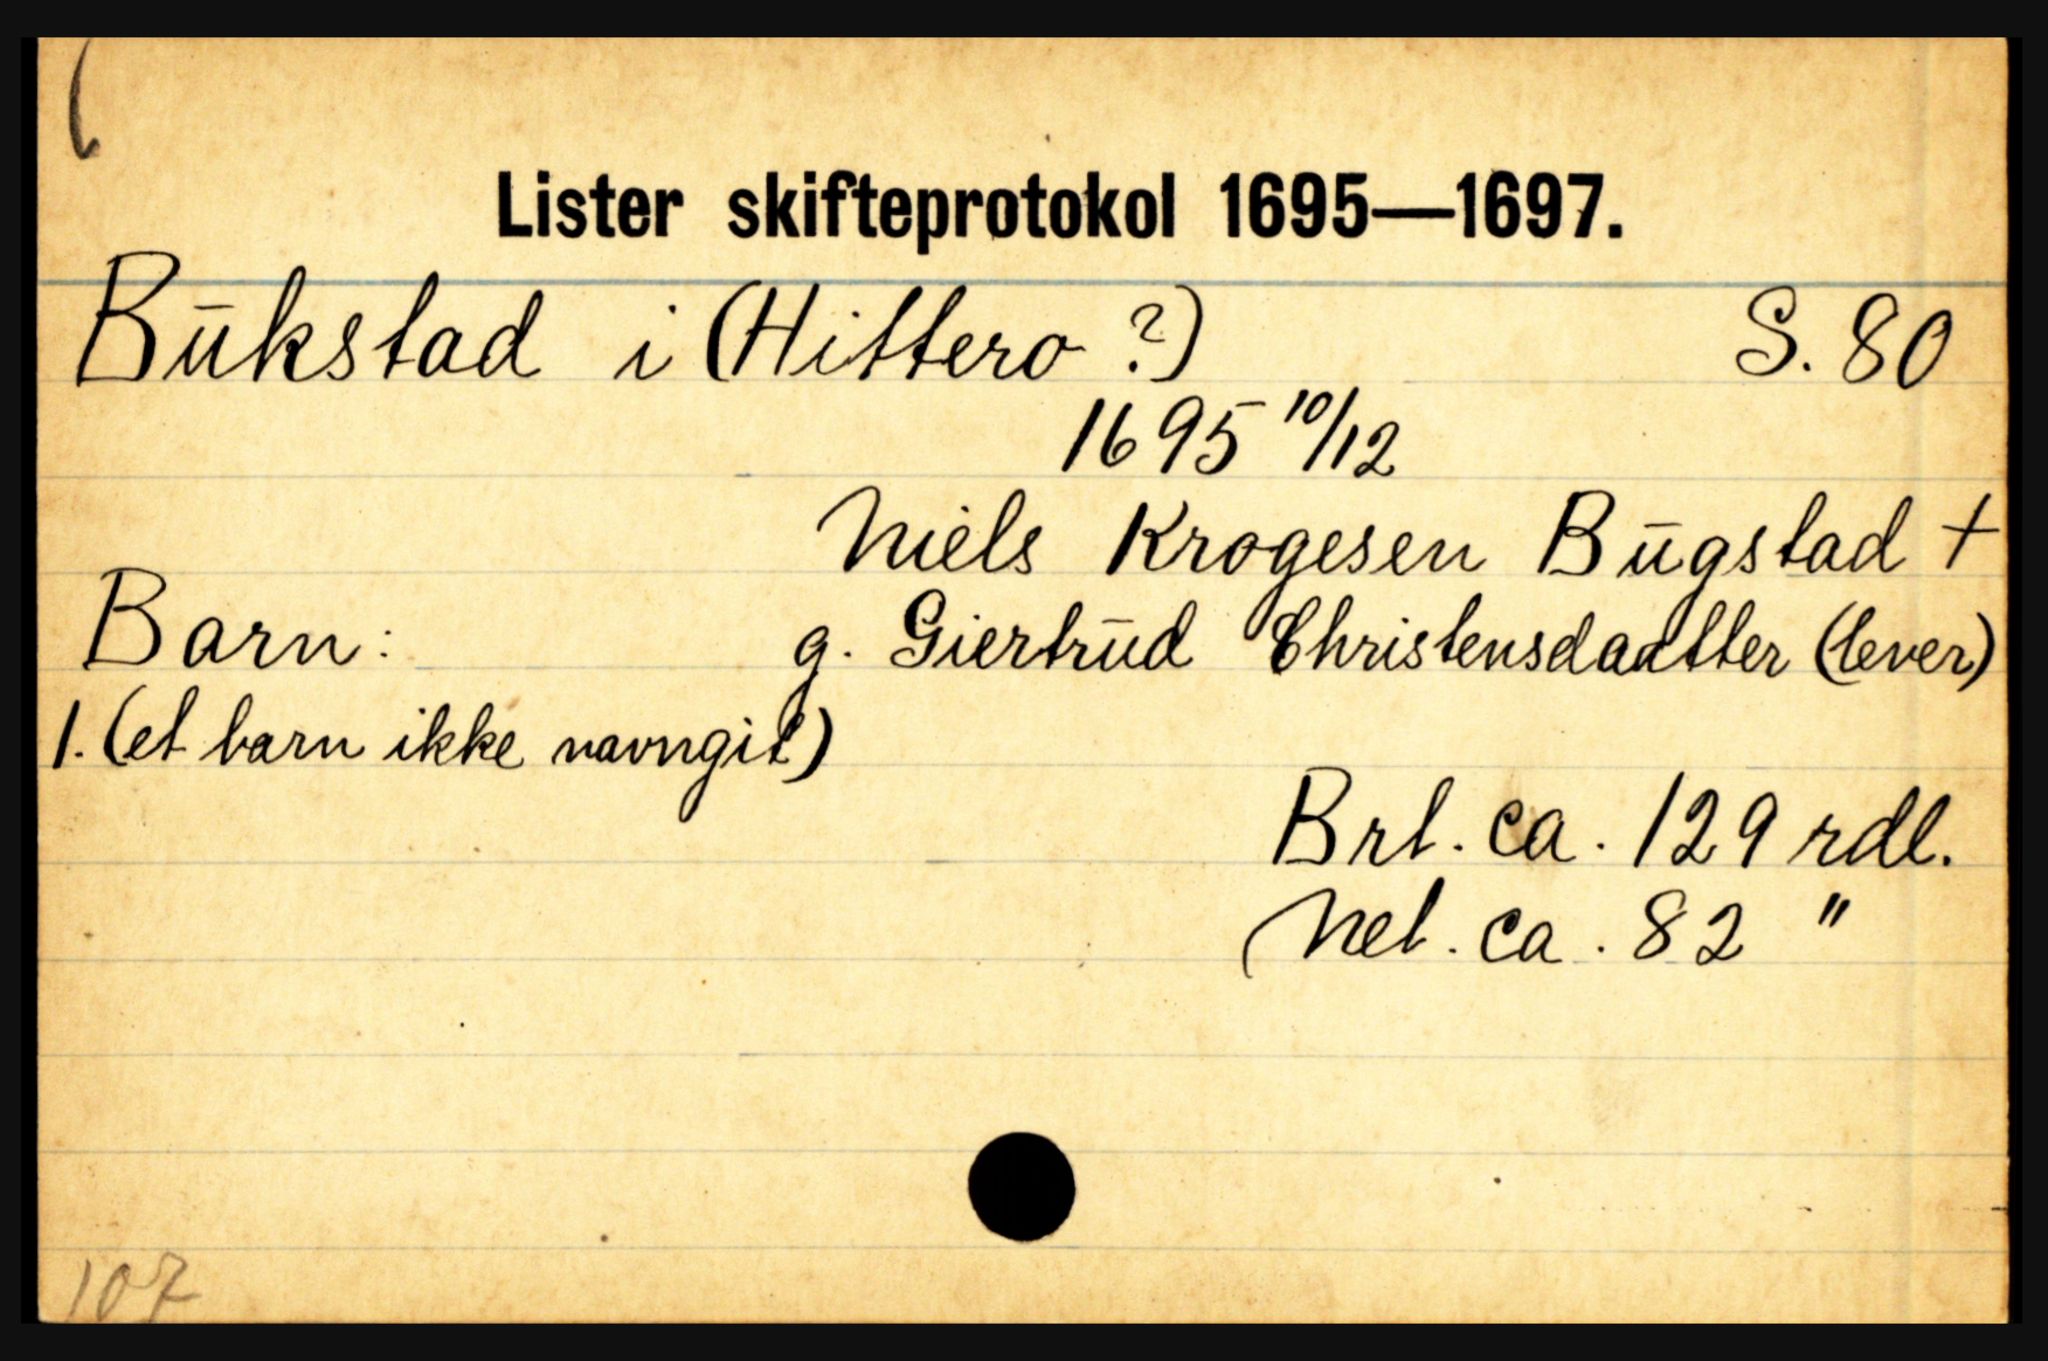 Lister skifteprotokol 1695—1697.
Būkstad i (Hittero ?) S. 80
1695 10/12
Niels Krogesen Būgstad †
Barn: g. Giertrūd Christensdaatter (lever)
1. (et barn ikke navngit)
Brt. ca. 129 rdl.
Net. ca. 82 "
107